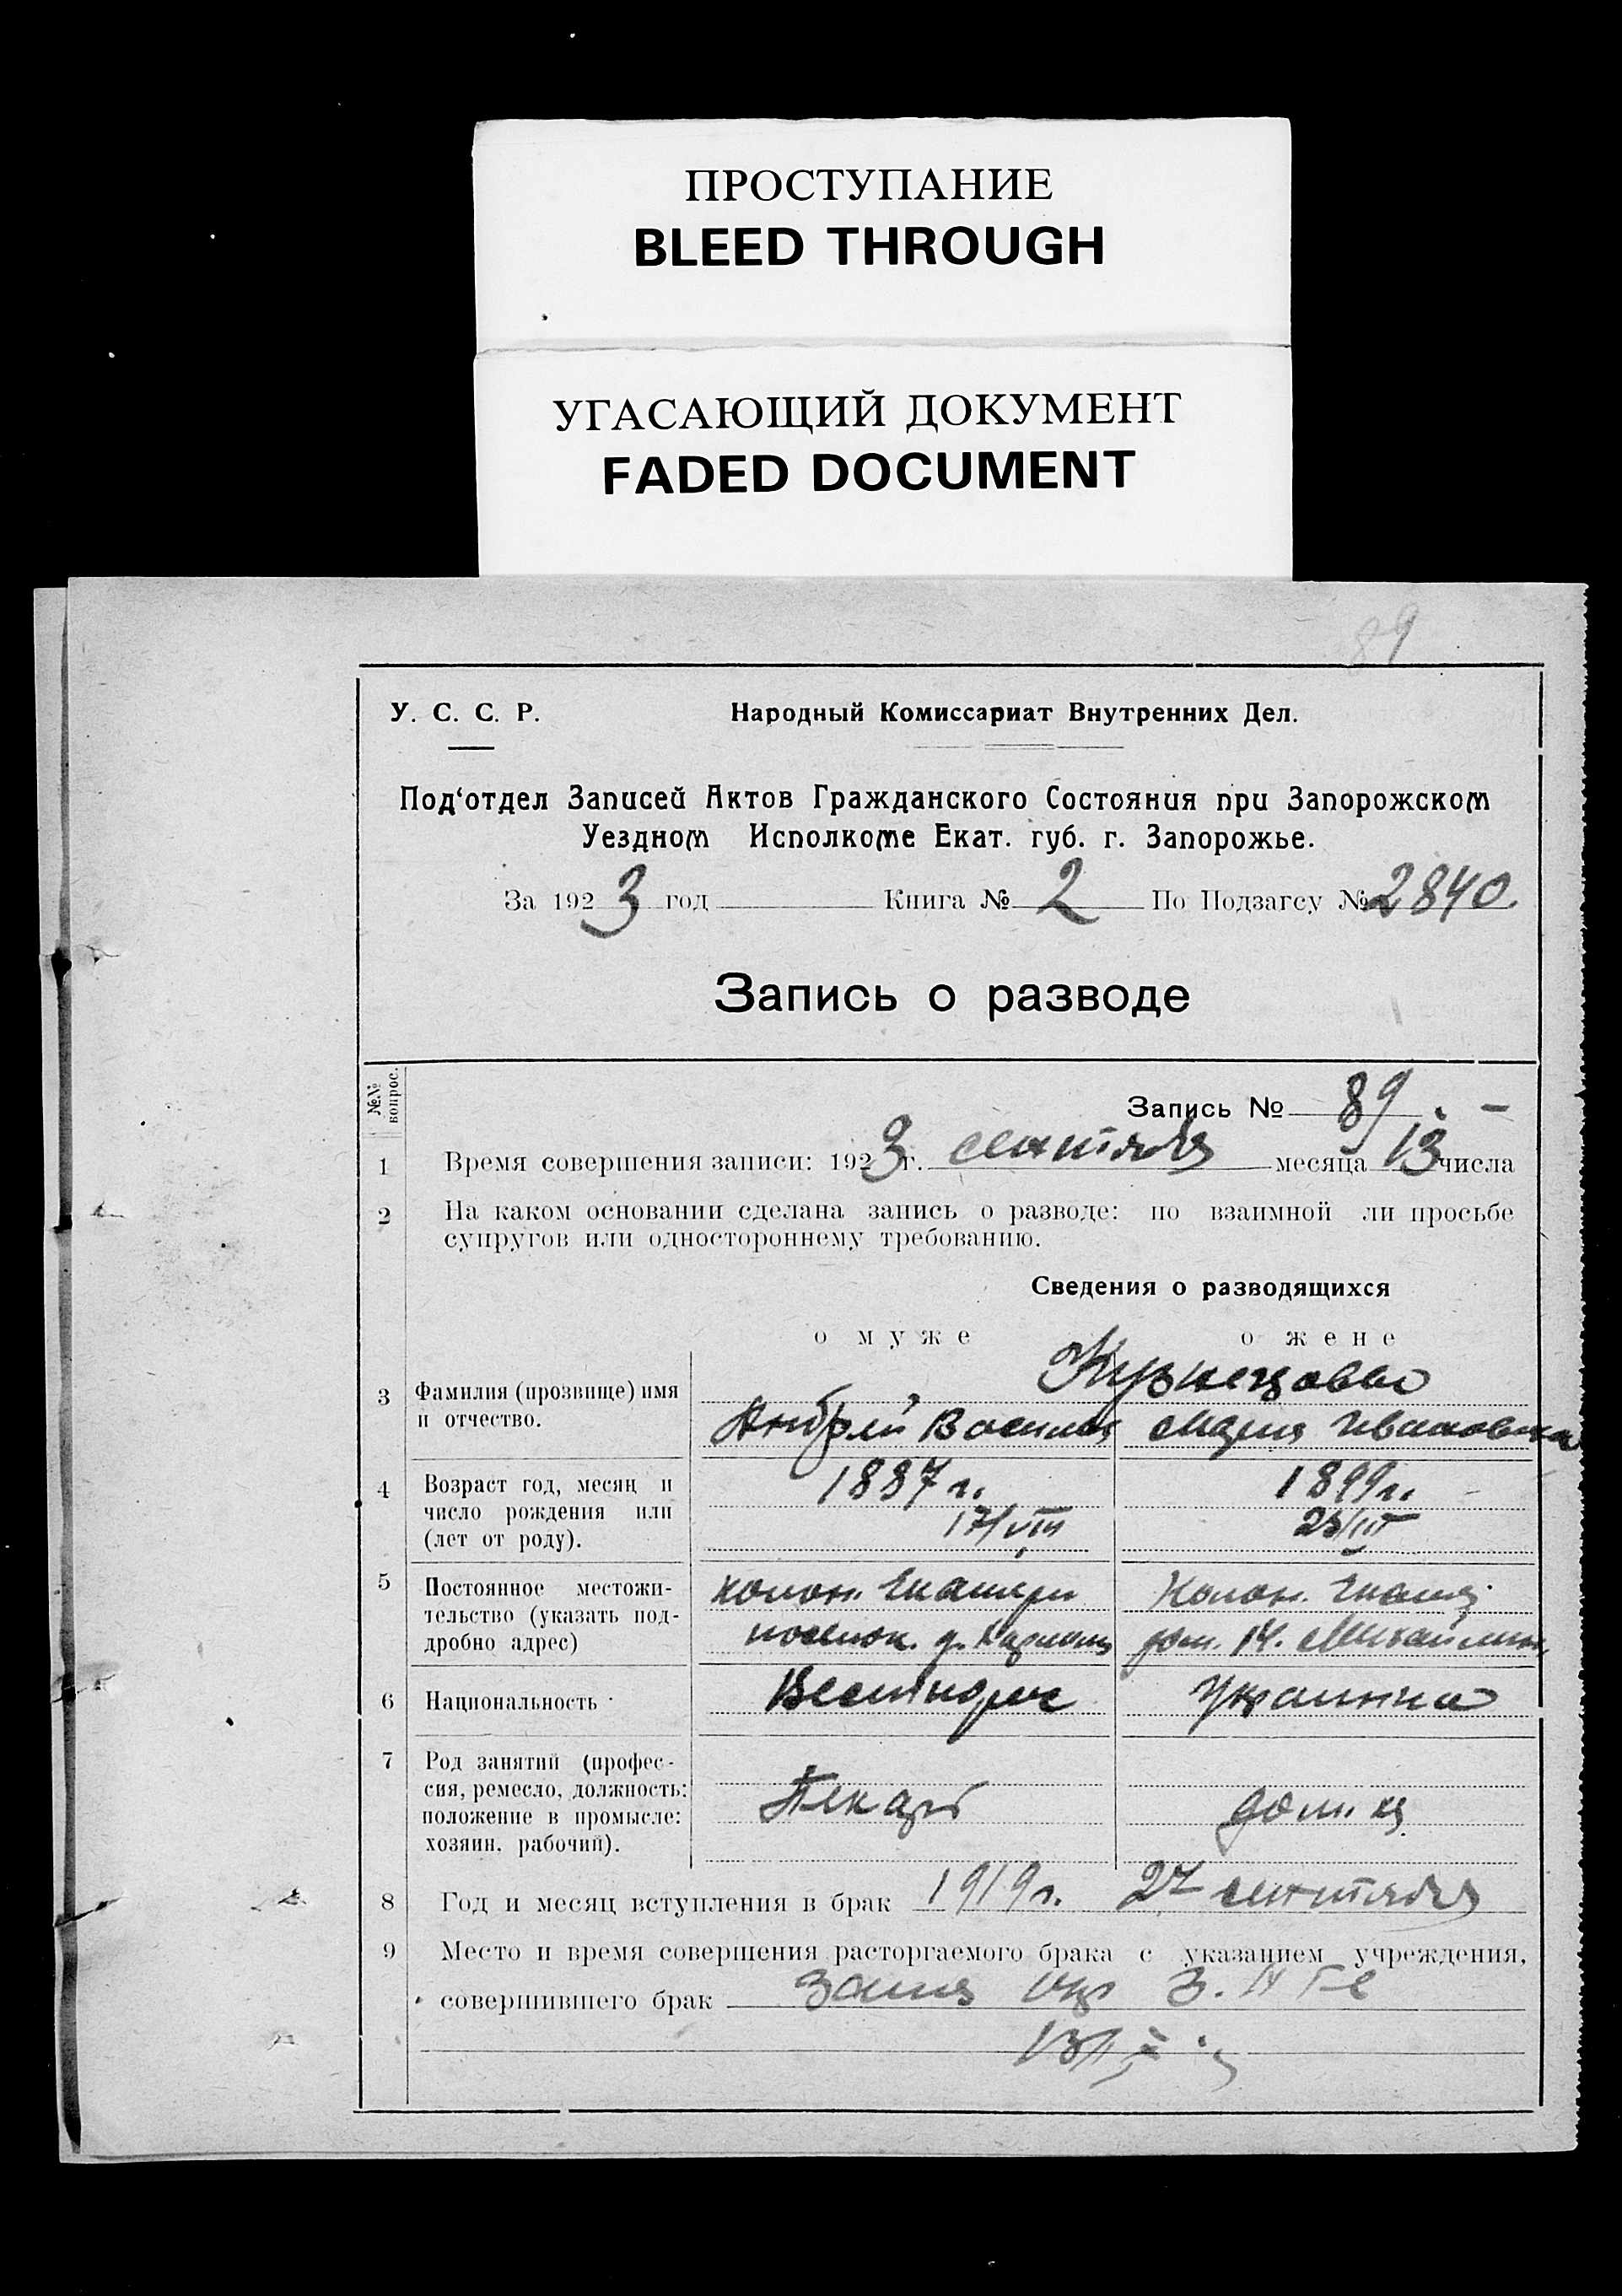 ПРОСТУПАНИЕ
BLEED THROUGH
УГАСАЮЩИЙ ДОКУМЕНТ
FADED DOCUMENT
89
У. С. С. Р. Народный Комиссариат Внутренних Дел.
Под‘отдел Записей Актов Гражданского Состояния при Запорожском
Уездном Исполкоме Екат. губ. г. Запорожье.
За 1923 год Книга № 2 По Подзагсу № 2840.
Запись о разводе
№№ вопрос.
Запись № 89. –
1 Время совершения записи: 1923 г. сентября месяца 13 числа
2 На каком основании сделана запись о разводе: по взаимной ли просьбе
супругов или одностороннему требованию.
Сведения о разводящихся
о муже о жене
Кузнецовы
3 Фамилия (прозвище) имя
и отчество. Андрей Васил Мария Ивановна
4 Возраст год, месяц и 1887 г. 1899 г.
число рождения или 17/VIII 23/III
(лет от роду).
5 Постоянное местожи- колон. Екатери Колон. Екатер.
тельство (указать под- поселок. д. дом. 14.
дробно адрес)
6 Национальность Украинка
7 Род занятий (профес-
сия, ремесло, должность: Пекарь дом. х
положение в промысле:
хозяин, рабочий).
8 Год и месяц вступления в брак 1919 г. 27 сентября
9 Место и время совершения расторгаемого брака с указанием учреждения,
совершившего брак